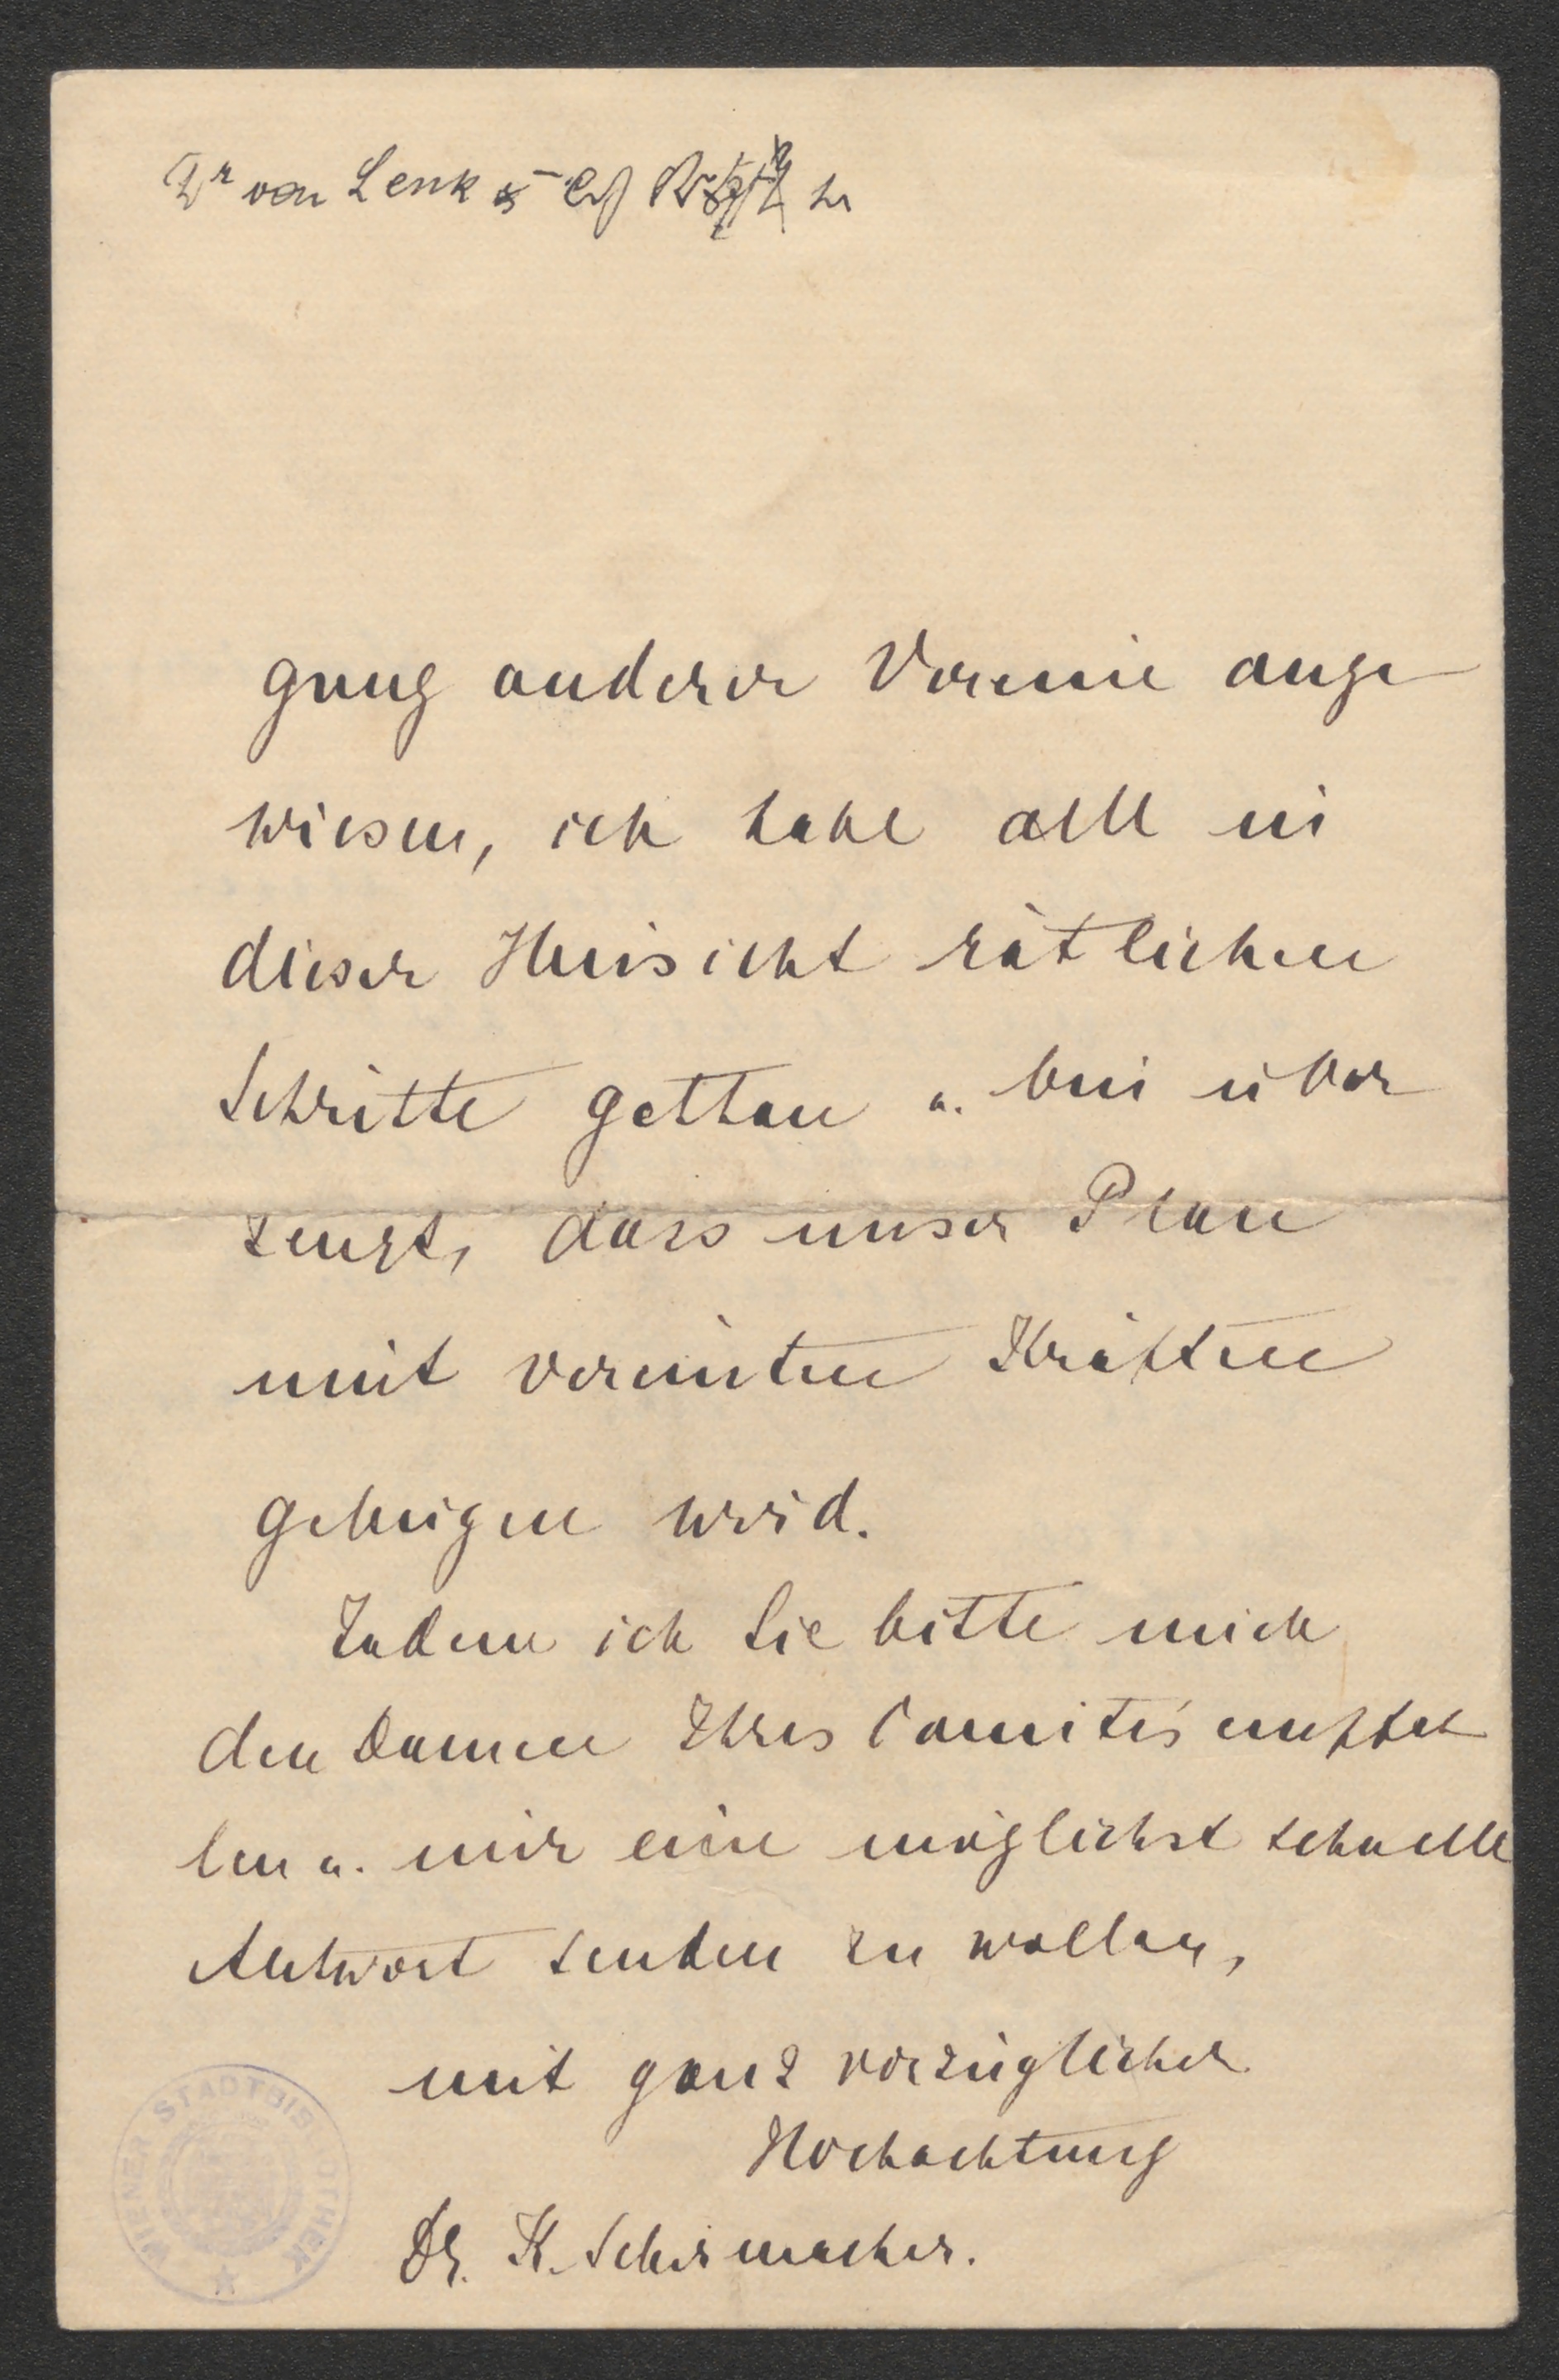 Dr von Lenk
gung anderer Vereine ange
wiesen, ich habe alle in
dieser Hinsicht rätlichen
Schritte gethan u. bin über
zeugt, dass unser Plan
mit vereinten Kräften
gelingen wird.
Indem ich Sie bitte mich
den Damen Ihres Comités empfeh
len u. mir eine möglichst schnelle
Antwort senden zu wollen,
mit ganz vorzüglicher
Hochachtung
Dr. K. Schirmacher.
WIENER STADTBIBLIOTHEK